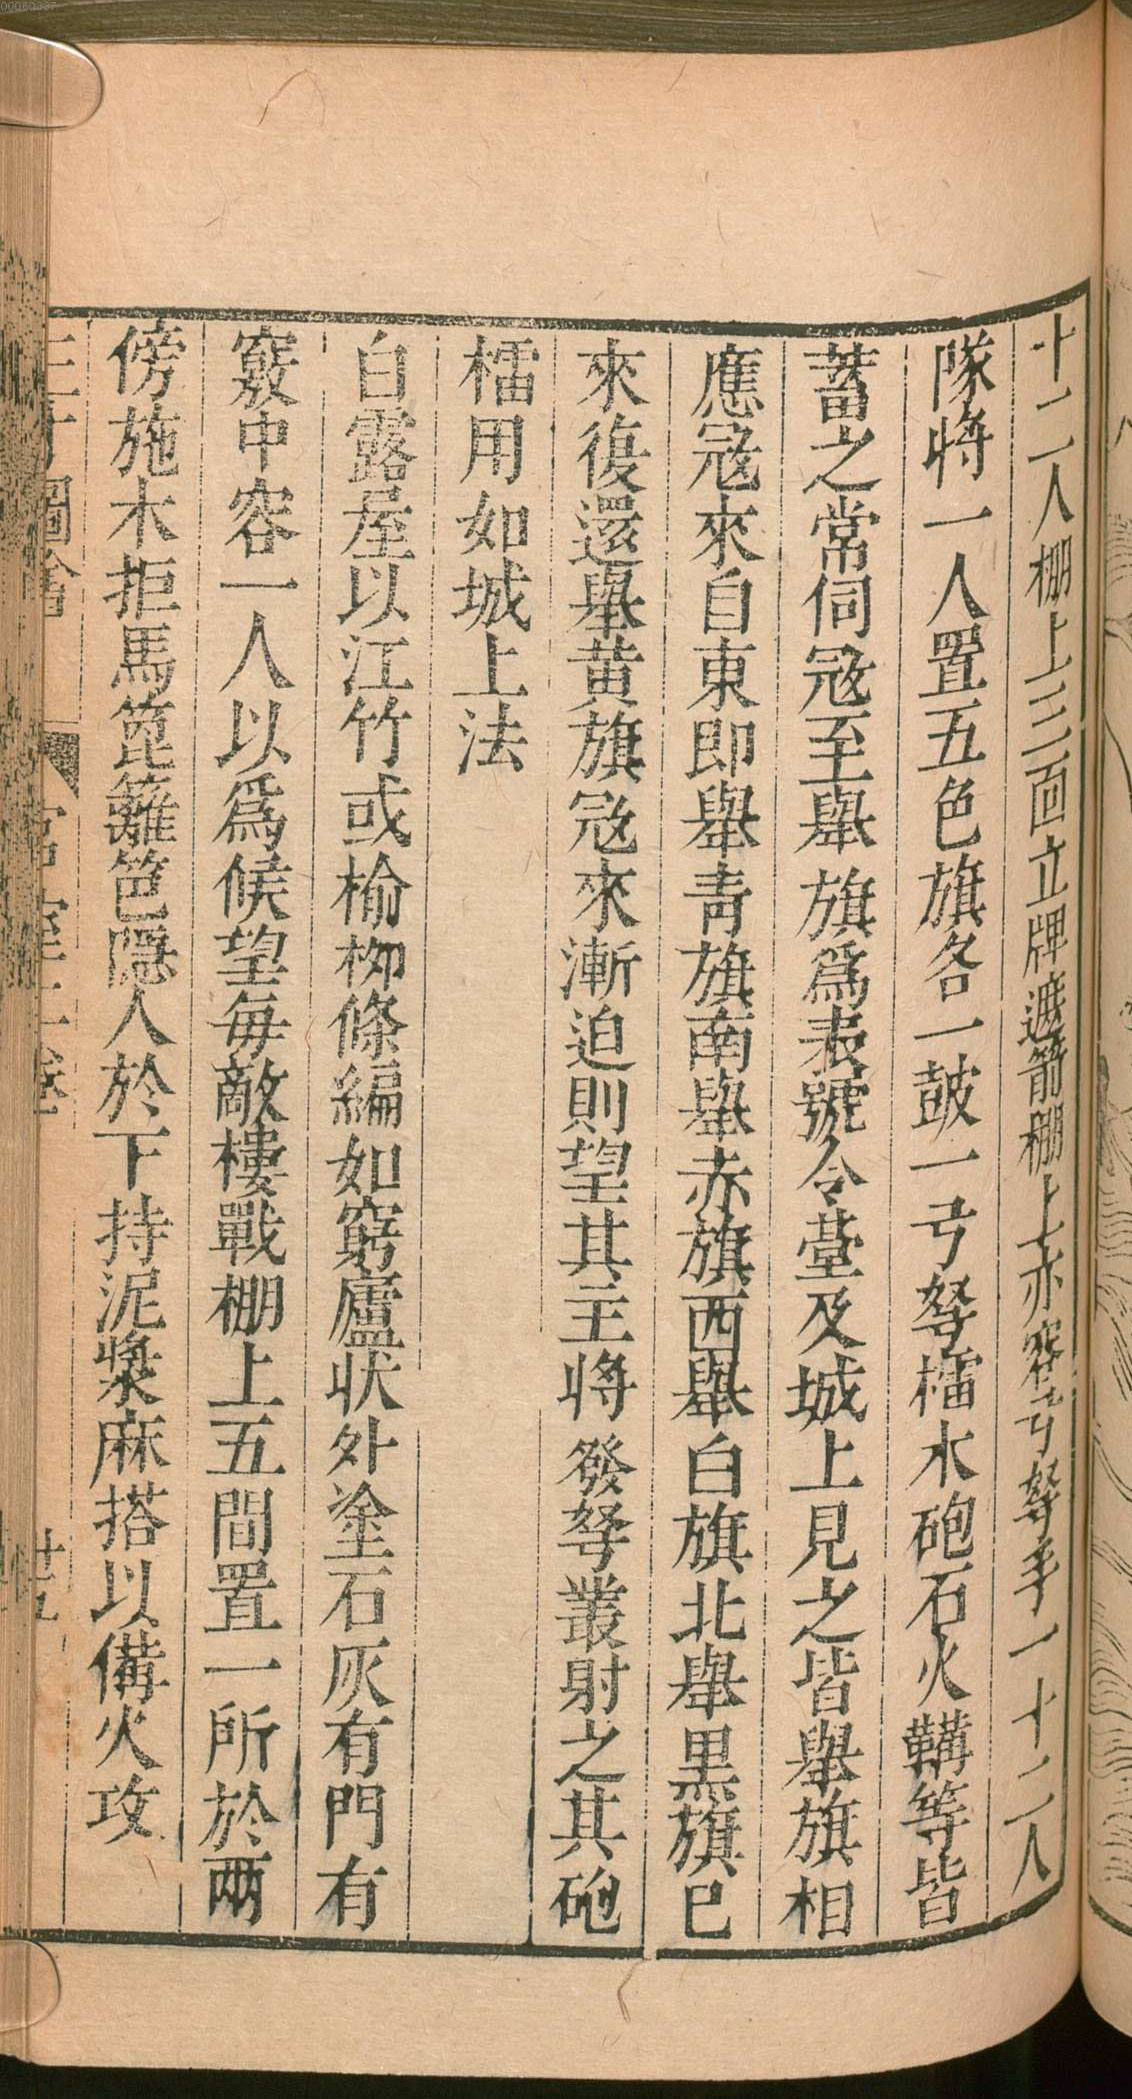 十二人棚上三面立牌遮箭棚上亦容弓弩手一十二人
隊將一人置五色旗各一皷一弓弩檑木砲石火鞲等皆
蓄之常伺冦至舉旗爲表號令臺及城上見之皆舉旗相
應冦來自東即舉青旗南舉赤旗西舉白旗北舉黑旗巳
來復還舉黄旗冦來漸迫則望其主將發弩叢射之其砲
檑用如城上法
白露屋以江竹或榆栁條編如窮廬状外塗石灰有門有
竅中容一人以爲候望每敵樓戰棚上五間置一所於两
傍施木拒馬箆籬笆隠人於下持泥漿麻搭以備火攻
三才圖會 宫室二卷 廿五